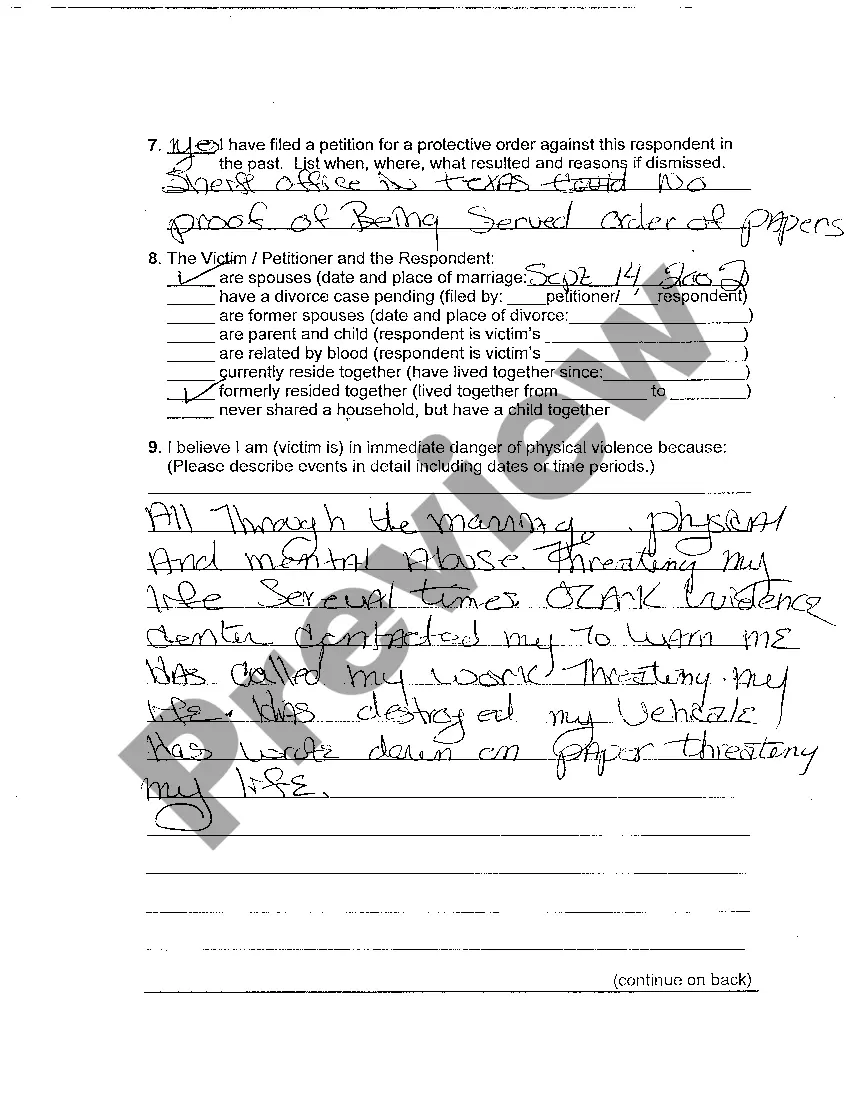 7. Yes I have filed a petition for a protective order against this respondent in
the past. List when, where, what resulted and reasons if dismissed.
Sherif office in texas No
proof of Being Served order of papers
8. The Victim / Petitioner and the Respondent:
✓ are spouses (date and place of marriage: Sept 14
_____ have a divorce case pending (filed by: ____petitioner/__ respondent)
_____ are former spouses (date and place of divorce:____________________)
_____ are parent and child (respondent is victim's ______________________)
_____ are related by blood (respondent is victim's ______________________)
_____ currently reside together (have lived together since:________________)
✓ formerly resided together (lived together from __________ to _________)
_____ never shared a household, but have a child together
9. I believe I am (victim is) in immediate danger of physical violence because:
(Please describe events in detail including dates or time periods.)
All Through the marriage, physical
And mental Abuse. Threating my
life several times OZARK
center contacted my To warn me
Has called my work Threating my
life. Has destroyed my
Has down on paper threateny
my life.
(continue on back)
Preview